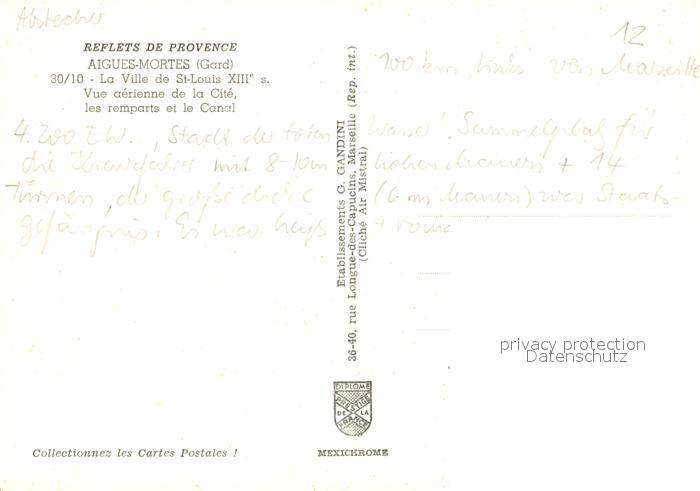 Abstecher
12
REFLETS DE PROVENCE
AIGUES-MORTES (Gard)
30/10 - La Ville de St-Louis XIIIe s.
Vue aérienne de la Cité,
les remparts et le Canal
100 km links von Marseille
4.200 Ew., Stadt der toten Wasser! Sammelplatz für
die Kreuzfahrer mit 8-10m hohen Mauern + 14
Türmen, der große dicke (6 m Mauern) war Staats-
gefängnis. Es war heiß +
Etablissements G. GANDINI
36-40, rue Longue-des-Capucins, Marseille (Rep. int.)
(Cliché Air Mistral)
privacy protection
Datenschutz
DIPLOME
PRESTIGE
DE LA
FRANCE
Collectionnez les Cartes Postales !
MEXICHROME